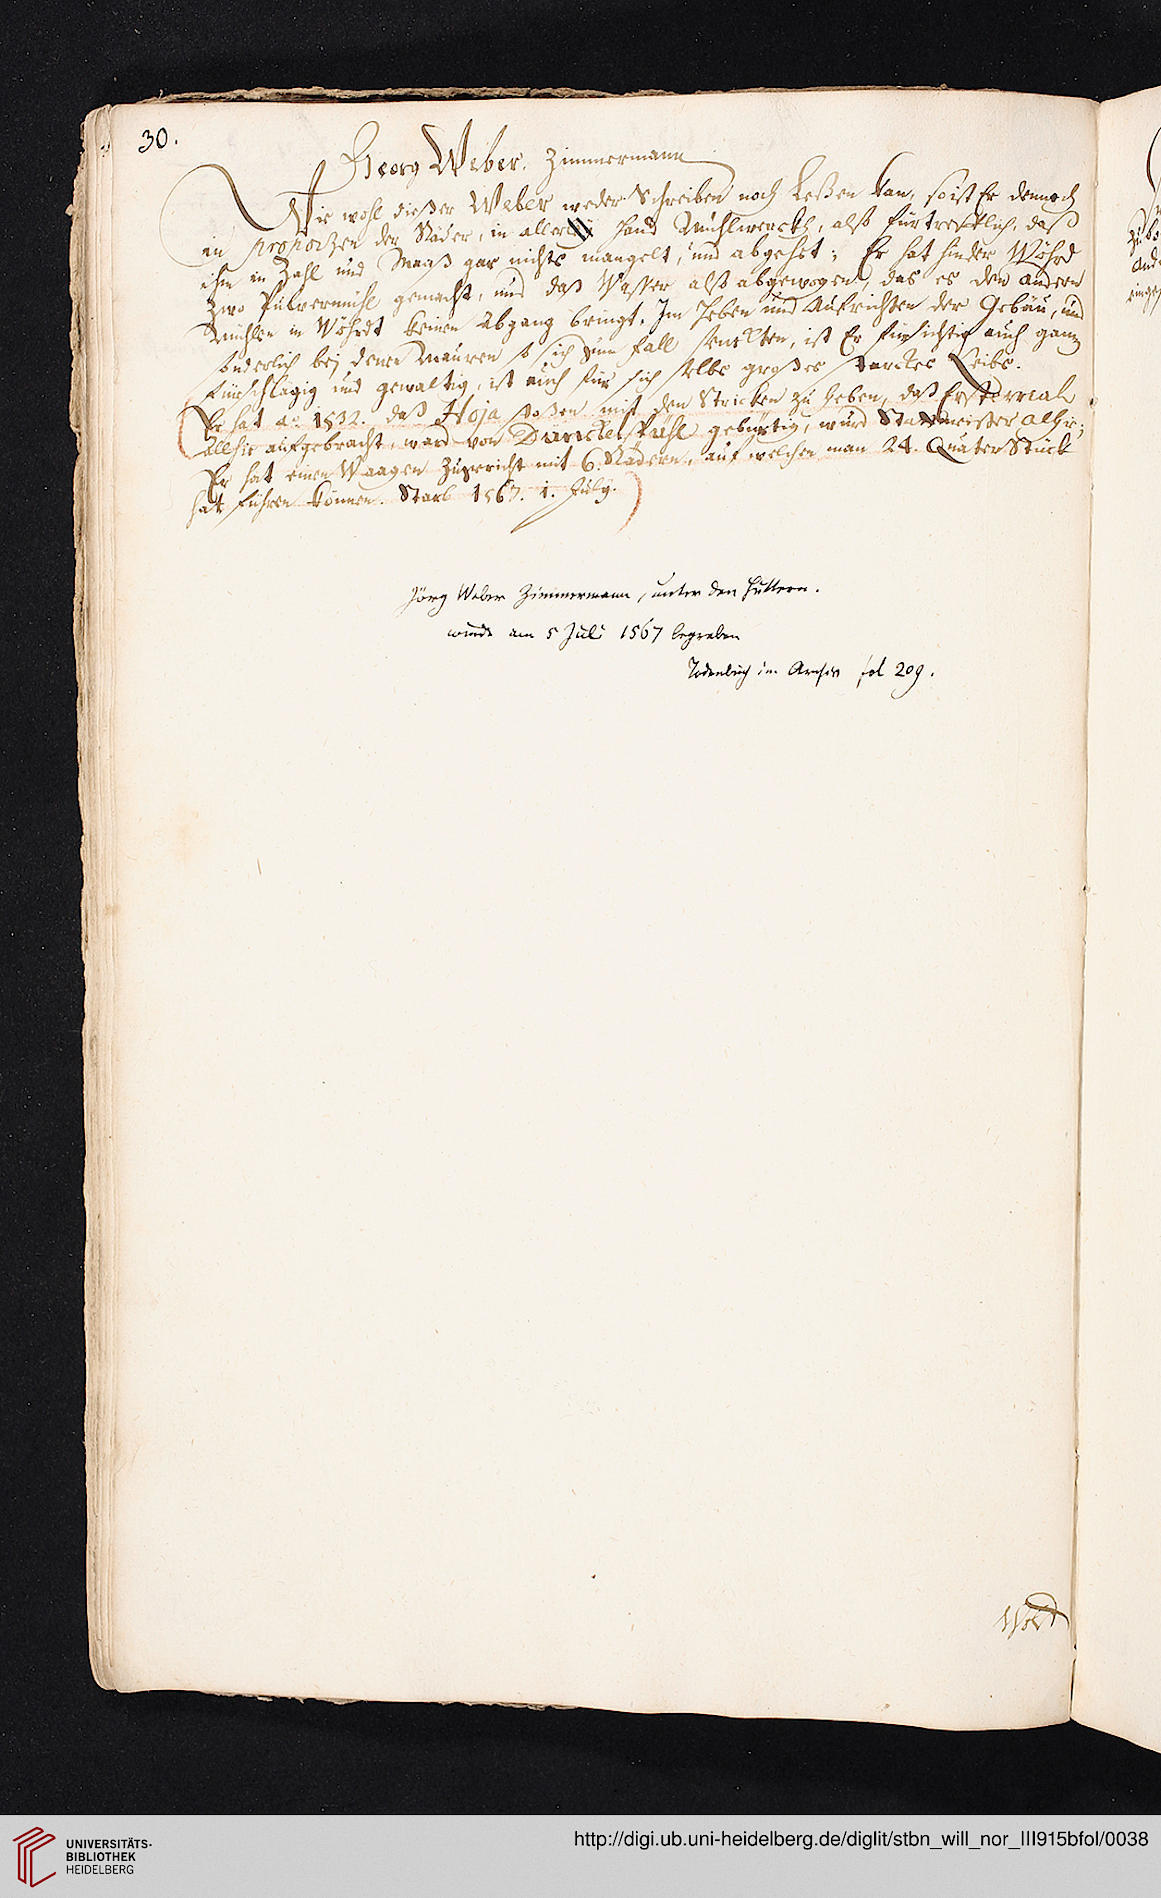 30.
Georg Weber. Zimmermann
Wie wohl dießer Weber weder Schreiben noch Leßen kan, so ist Er dennoch
in proportzen der Räder, in allerley hand Mühlwerckh, alß fürtrefflich, daß
ihm in Zahl und Maaß gar nichts mangelt, und abgehet; Er hat hinder Wöhrd
Zwo Pulvermühl gemacht, und daß Waßer alß abgewogen, das es den andern
Mühlen in Wöhrdt keinen Abgang bringt. Im Heben und Aufrichten der Gebäu, und
sonderlich bej denen Mauren so sich zum fall senckten, ist Er fürsichtig auch gantz
fürschlägig und gewaltig, ist auch für sich selbs großes starckes Leibs.
Er hat aō 1532. daß Hoja stoßen mit den Stricken zu heben, daß Erstemal
allhie aufgebracht, ward von Dunckelspühl gebürtig, wurd Stattmeister alhir;
Er hat einen Waagen Zugericht mit 6. Rädern, auf welchen man 24. Quater Stück
hat führen können. Starb 1567. 1. July.
Jörg Weber Zimmermann, unter den Huttern.
wurde am 5 Juli 1567 begraben
Todenbuch im Archiv fol 209.
http://digi.ub.uni-heidelberg.de/diglit/stbn_will_nor_III915bfol/0038
UNIVERSITÄTS-
BIBLIOTHEK
HEIDELBERG